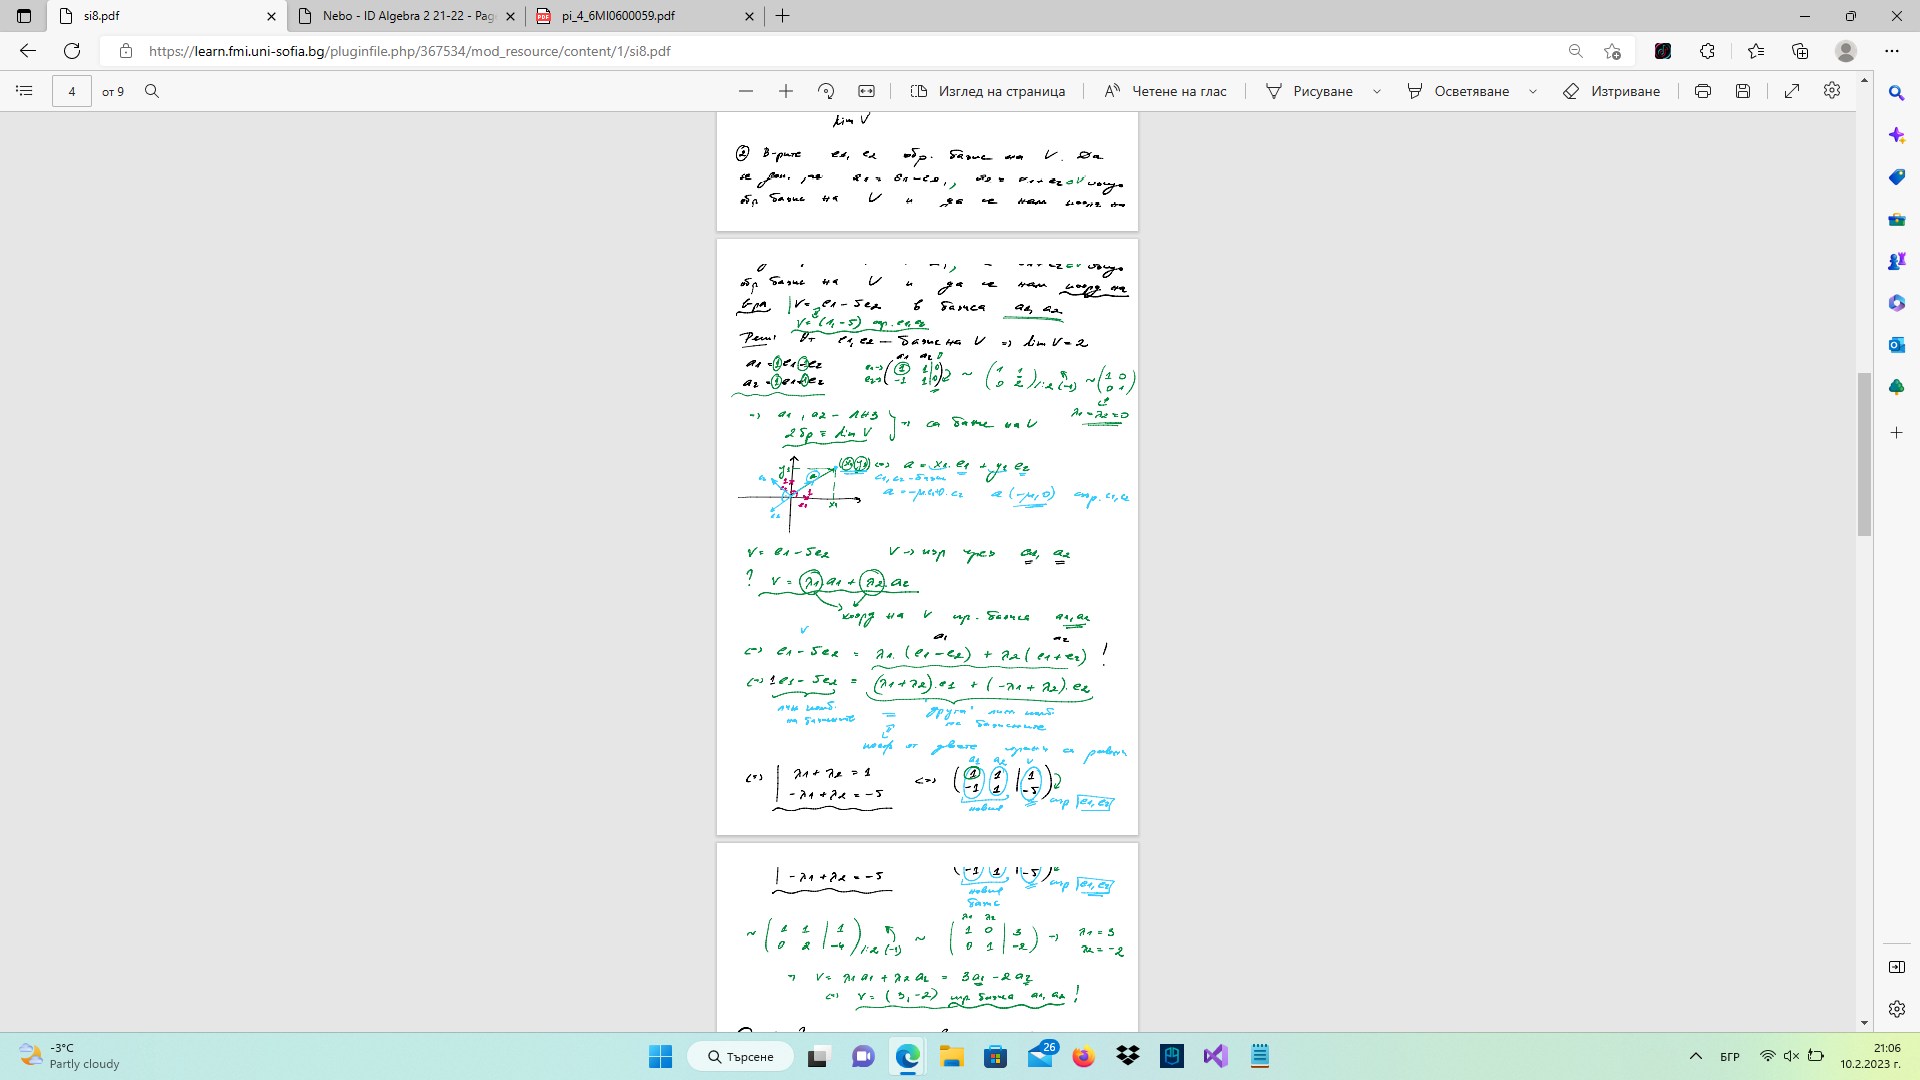 si8.pdf
Nebo - ID Algebra 2 21-22 - Pag
pi_4_6MI0600059.pdf
https://learn.fmi.uni-sofia.bg/pluginfile.php/367534/mod_resource/content/1/si8.pdf
4 от 9
Изглед на страница
Четене на глас
Рисуване
Осветяване
Изтриване
dim V
② В-рите e1, e2 обр. базис на V. Да
се док., че a1 = e1 - e2, a2 = e1+e2 ∈V също
обр базис на V и да се нам коорд на
обр базис на V и да се нам коорд на
в-ра V = e1 - 5e2 в базиса a1, a2
V = (1, -5) спр. e1, e2
Реш: От e1, e2 - базис на V => dim V = 2
a1 a2 0
a1 = 1e1 - 1e2
a2 = 1e1 + 1e2
e1-> ( 1 1 | 0
e2-> -1 1 | 0 ) ~ ( 1 1
0 2 ) /:2 (-1) ~ ( 1 0
0 1 )
λ1 = λ2 = 0
=> a1, a2 - ЛНЗ
2 бр = dim V } => са базис на V
(x1, y1) <=> a = x1. e1 + y1 e2
c1, c2 - базис
a = -μ.c1 + 0. c2 a (-μ, 0) спр. c1, c2
V = e1 - 5e2 V -> изр чрез a1, a2
? V = λ1. a1 + λ2. a2
коорд на V спр. базиса a1, a2
V a1 a2
<=> e1 - 5e2 = λ1. (e1 - e2) + λ2 (e1 + e2) !
<=> 1e1 - 5e2 = (λ1 + λ2). e1 + (-λ1 + λ2). e2
лин комб. = друга лин комб
на базисните на базисните
коеф от двете страни са равни
a1 a2 V
<=> | λ1 + λ2 = 1 <=> ( 1 1 | 1
-λ1 + λ2 = -5 -1 1 | -5 )
новия спр e1, e2
| -λ1 + λ2 = -5 ( -1 1 | -5 ) спр e1, e2
новия
базис
λ1 λ2
~ ( 1 1 | 1
0 2 | -4 ) /:2 (-1) ~ ( 1 0 | 3
0 1 | -2 ) => λ1 = 3
λ2 = -2
=> V = λ1 a1 + λ2 a2 = 3a1 - 2a2
<=> V = (3, -2) спр базиса a1, a2 !
-3°C
Partly cloudy
Търсене
26
БГР
21:06
10.2.2023 г.